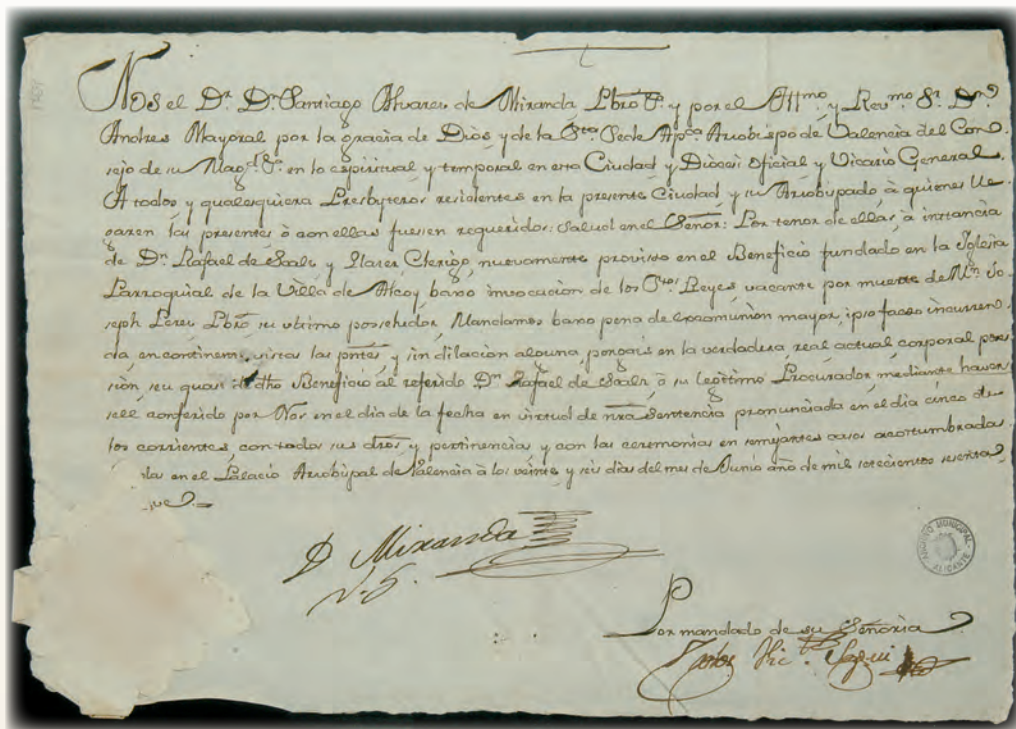 Nos el Dr. Dn. Santiago Alvarez de Miranda Pbro. Pr. y por el Illmo. y Revmo. Sr. Dn.
Andres Mayoral por la gracia de Dios y de la Sta. Sede Apca. Arzobispo de Valencia del Con
sejo de su Magd. &a. en lo espiritual y temporal en esta Ciudad y Diocesi Oficial y Vicario General.
A todos y qualesquiera Presbyteros residentes en la presente Ciudad y su Arzobispado à quienes lle
garen las presentes ò con ellas fuesen requeridos; salud en el Señor: Por tenor de ellas à instancia
de Dn. Rafael de Scals y Clerigo, nuevamente proviso en el Beneficio fundado en la Iglesia
Parroquial de la Villa de Alcoy baxo invocacion de los Stos. Reyes, vacante por muerte de Mn. Jo
seph Perez Pbro. su ultimo posehedor, Mandamos baxo pena de excomunion mayor, ipso facto incurren
da, en continenti, vistas las pntes. y sin dilacion alguna, pongais en la verdadera, real, actual, corporal poses
sion, seu quasi de dho Beneficio al referido Dn. Rafael de Scals, ò su legitimo Procurador, mediante haver
sele conferido por Nos en el dia de la fecha en virtud de nra Sentencia pronunciada en el dia cinco de
los corrientes, con todos sus dros, y pertinencia y con las ceremonias en semejantes casos acostumbradas.
en el Palacio Arzobispal de Valencia à los veinte y seis dias del mes de Junio año de mil setecientos sesenta
ue.
D. Miranda
V. G.
Por mandado de su Señoria
Carlos Victe. Seguí
ARCHIVO MUNICIPAL
ALICANTE